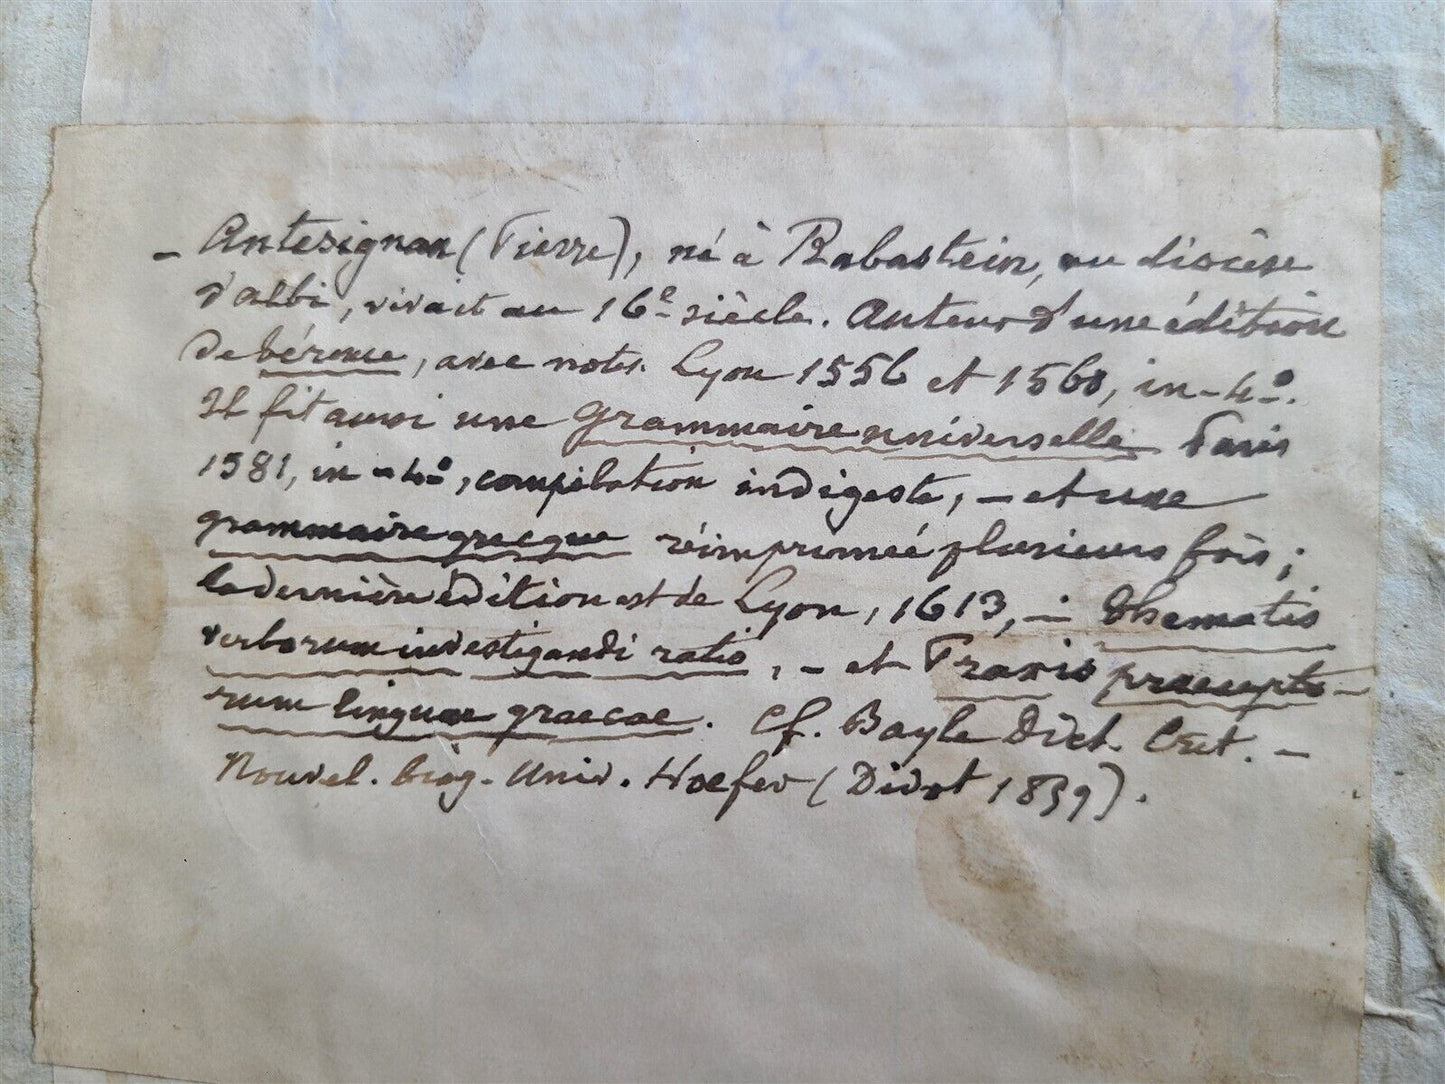 - Antesignan (Pierre), né à Rabastein, au diocèse
d'Albi, vivait au 16e siècle. Auteur d'une édition
de térence, avec notes. Lyon 1556 et 1560, in-4º.
Il fit aussi une Grammaire universelle Paris
1581, in-4º, compilation indigeste, - et une
grammaire grecque réimprimeé plusieurs fois ;
la dernière édition est de Lyon, 1613, - Thematis
verborum investigandi ratio, - et Praxis praecepto-
rum linguae graecae. Cf. Bayle Dict. Crit. -
Nouvel. biog. Univ. Hoefer (Didot 1859).